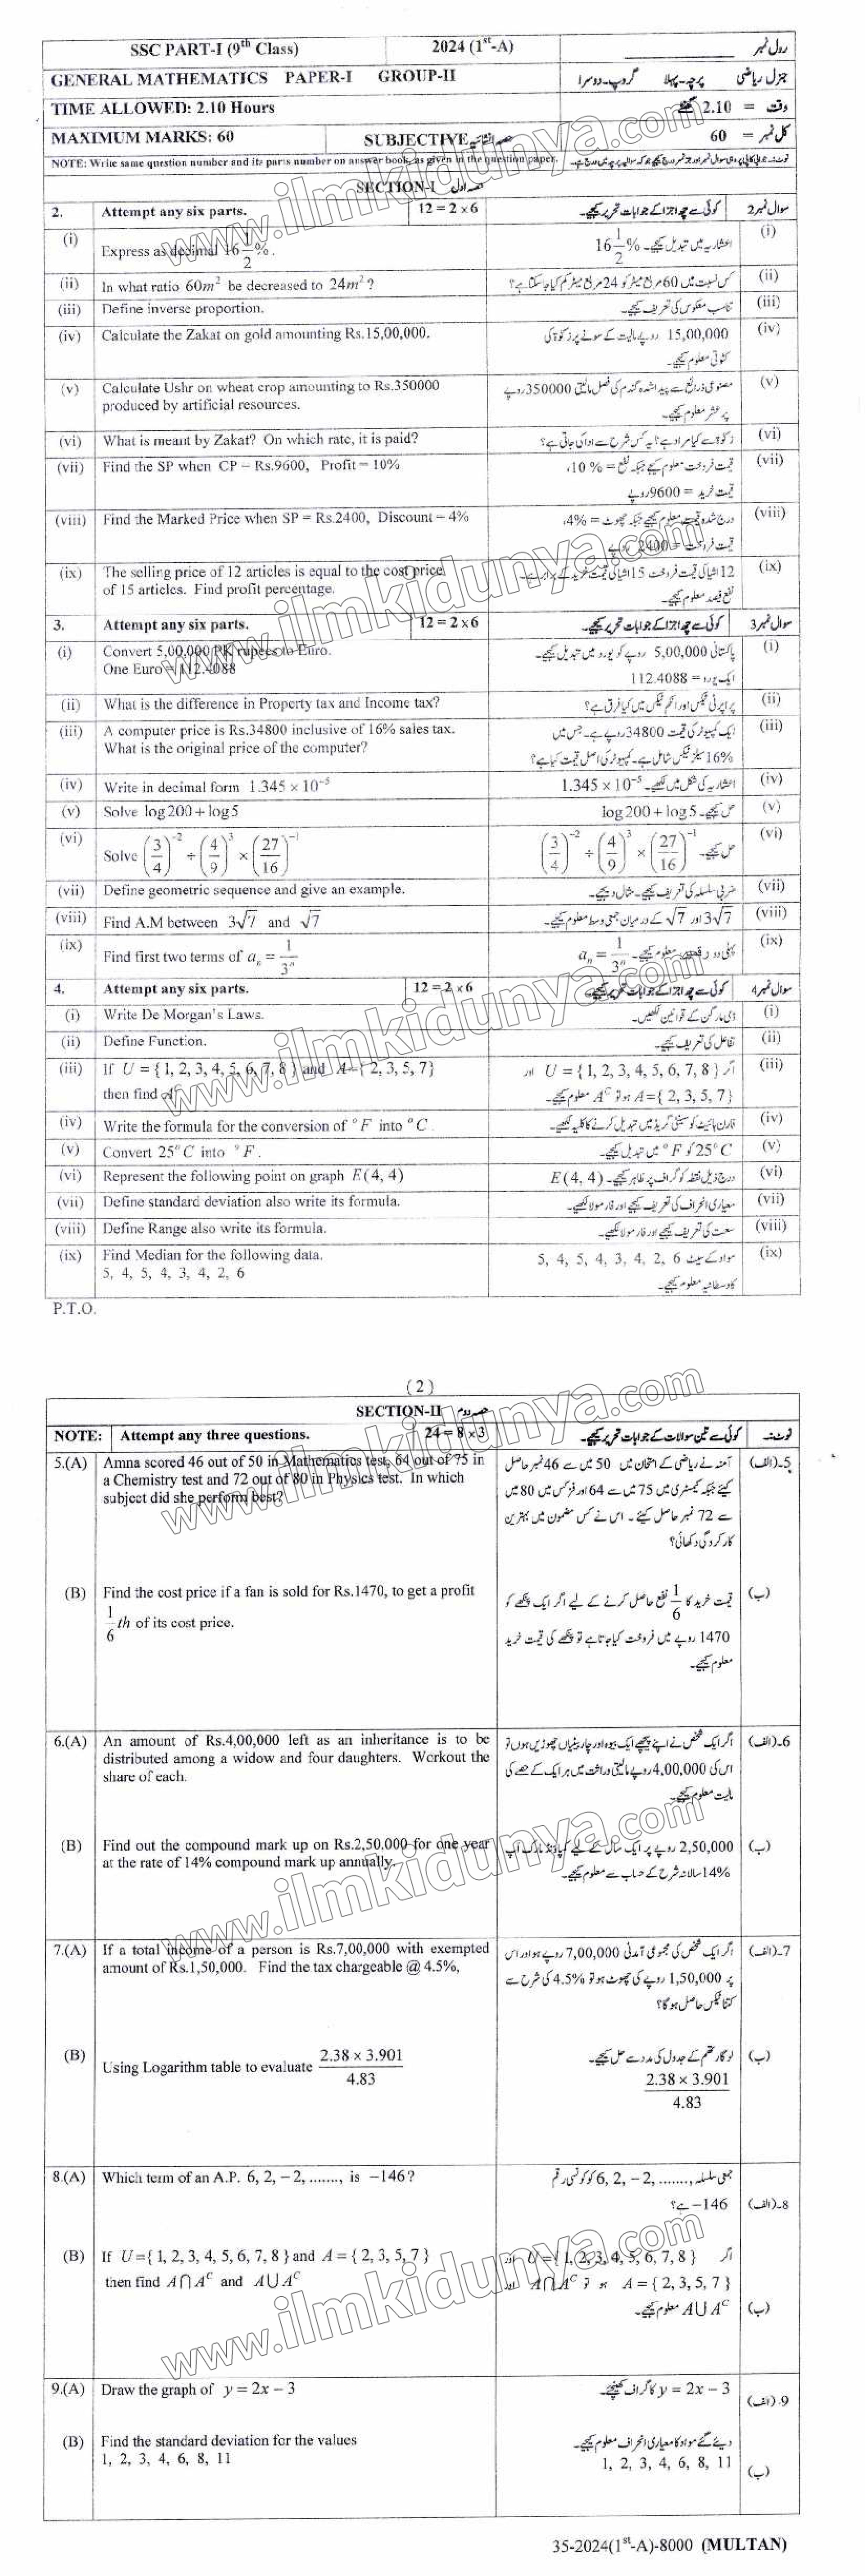 SSC PART-I (9th Class) 2024 (1st-A) رول نمبر
GENERAL MATHEMATICS PAPER-I GROUP-II جنرل ریاضی پرچہ۔پہلا گروپ۔دوسرا
TIME ALLOWED: 2.10 Hours وقت = 2.10 گھنٹے
MAXIMUM MARKS: 60 SUBJECTIVE حصہ انشائیہ کل نمبر = 60
NOTE: Write same question number and its parts number on answer book, as given in the question paper.
SECTION-I حصہ اول
2. Attempt any six parts. 12 = 2 × 6 کوئی سے چھ اجزا کے جوابات تحریر کیجیے۔ سوال نمبر 2
(i) Express as decimal 16 1/2 %. 16 1/2 % اعشاریہ میں تبدیل کیجیے۔ (i)
(ii) In what ratio 60m² be decreased to 24m² ? کس نسبت میں 60 مربع میٹر کو 24 مربع میٹر کم کیا جا سکتا ہے؟ (ii)
(iii) Define inverse proportion. تناسب معکوس کی تعریف کیجیے۔ (iii)
(iv) Calculate the Zakat on gold amounting Rs.15,00,000. 15,00,000 روپے مالیت کے سونے پر زکوٰۃ کی
کٹوتی معلوم کیجیے۔ (iv)
(v) Calculate Ushr on wheat crop amounting to Rs.350000 مصنوعی ذرائع سے پیدا شدہ گندم کی فصل مالیتی 350000 روپے
produced by artificial resources. پر عشر معلوم کیجیے۔ (v)
(vi) What is meant by Zakat? On which rate, it is paid? زکوٰۃ سے کیا مراد ہے؟ یہ کس شرح سے ادا کی جاتی ہے؟ (vi)
(vii) Find the SP when CP = Rs.9600, Profit = 10% قیمت فروخت معلوم کیجیے جبکہ نفع = 10%،
قیمت خرید = 9600 روپے (vii)
(viii) Find the Marked Price when SP = Rs.2400, Discount = 4% درج شدہ قیمت معلوم کیجیے جبکہ چھوٹ = 4%،
قیمت فروخت = 2400 روپے (viii)
(ix) The selling price of 12 articles is equal to the cost price 12 اشیا کی قیمت فروخت 15 اشیا کی قیمت خرید کے برابر ہے۔
of 15 articles. Find profit percentage. نفع فیصد معلوم کیجیے۔ (ix)
3. Attempt any six parts. 12 = 2 × 6 کوئی سے چھ اجزا کے جوابات تحریر کیجیے۔ سوال نمبر 3
(i) Convert 5,00,000 PK rupees to Euro. پاکستانی 5,00,000 روپے کو یورو میں تبدیل کیجیے۔
One Euro = 112.4088 ایک یورو = 112.4088 (i)
(ii) What is the difference in Property tax and Income tax? پراپرٹی ٹیکس اور انکم ٹیکس میں کیا فرق ہے؟ (ii)
(iii) A computer price is Rs.34800 inclusive of 16% sales tax. ایک کمپیوٹر کی قیمت 34800 روپے ہے۔ جس میں
What is the original price of the computer? 16% سیلز ٹیکس شامل ہے۔ کمپیوٹر کی اصل قیمت کیا ہے؟ (iii)
(iv) Write in decimal form 1.345 × 10⁻⁵ اعشاریہ کی شکل میں لکھیے۔ 1.345 × 10⁻⁵ (iv)
(v) Solve log200 + log5 حل کیجیے۔ log200 + log5 (v)
(vi) Solve (3/4)⁻² ÷ (4/9)³ × (27/16)⁻¹ حل کیجیے۔ (3/4)⁻² ÷ (4/9)³ × (27/16)⁻¹ (vi)
(vii) Define geometric sequence and give an example. ضربی سلسلہ کی تعریف کیجیے۔ مثال دیجیے۔ (vii)
(viii) Find A.M between 3√7 and √7 3√7 اور √7 کے درمیان جمعی وسط معلوم کیجیے۔ (viii)
(ix) Find first two terms of aₙ = 1/3ⁿ پہلی دو رقمیں معلوم کیجیے۔ aₙ = 1/3ⁿ (ix)
4. Attempt any six parts. 12 = 2 × 6 کوئی سے چھ اجزا کے جوابات تحریر کیجیے۔ سوال نمبر 4
(i) Write De Morgan's Laws. ڈی مارگن کے قوانین لکھیں۔ (i)
(ii) Define Function. تفاعل کی تعریف کیجیے۔ (ii)
(iii) If U = {1, 2, 3, 4, 5, 6, 7, 8} and A = {2, 3, 5, 7} اگر U = {1, 2, 3, 4, 5, 6, 7, 8} اور
then find Aᶜ A = {2, 3, 5, 7} تو Aᶜ معلوم کیجیے۔ (iii)
(iv) Write the formula for the conversion of °F into °C. فارن ہائیٹ کو سینٹی گریڈ میں تبدیل کرنے کا کلیہ لکھیے۔ (iv)
(v) Convert 25°C into °F. 25°C کو °F میں تبدیل کیجیے۔ (v)
(vi) Represent the following point on graph E(4, 4) درج ذیل نقطہ کو گراف پر ظاہر کیجیے۔ E(4, 4) (vi)
(vii) Define standard deviation also write its formula. معیاری انحراف کی تعریف کیجیے اور فارمولا لکھیے۔ (vii)
(viii) Define Range also write its formula. سعت کی تعریف کیجیے اور فارمولا لکھیے۔ (viii)
(ix) Find Median for the following data. مواد کے سیٹ 5, 4, 5, 4, 3, 4, 2, 6
5, 4, 5, 4, 3, 4, 2, 6 کا وسطانیہ معلوم کیجیے۔ (ix)
P.T.O.
(2)
SECTION-II حصہ دوم
NOTE: Attempt any three questions. 24 = 8 × 3 کوئی سے تین سوالات کے جوابات تحریر کیجیے۔ نوٹ:۔
5.(A) Amna scored 46 out of 50 in Mathematics test, 64 out of 75 in آمنہ نے ریاضی کے امتحان میں 50 میں سے 46 نمبر حاصل 5۔(الف)
a Chemistry test and 72 out of 80 in Physics test. In which کیے جبکہ کیمسٹری میں 75 میں سے 64 اور فزکس میں 80 میں
subject did she perform best? سے 72 نمبر حاصل کیے۔ اس نے کس مضمون میں بہترین
کارکردگی دکھائی؟
(B) Find the cost price if a fan is sold for Rs.1470, to get a profit قیمت خرید کا 1/6 نفع حاصل کرنے کے لیے اگر ایک پنکھے کو (ب)
1/6 th of its cost price. 1470 روپے میں فروخت کیا جاتا ہے تو پنکھے کی قیمت خرید
معلوم کیجیے۔
6.(A) An amount of Rs.4,00,000 left as an inheritance is to be اگر ایک شخص نے اپنے پیچھے ایک بیوہ اور چار بیٹیاں چھوڑیں ہوں تو 6۔(الف)
distributed among a widow and four daughters. Workout the اس کی 4,00,000 روپے مالیتی وراثت میں ہر ایک کے حصے کی
share of each. مالیت معلوم کیجیے۔
(B) Find out the compound mark up on Rs.2,50,000 for one year 2,50,000 روپے پر ایک سال کے لیے کمپاؤنڈ مارک اپ (ب)
at the rate of 14% compound mark up annually. 14% سالانہ شرح کے حساب سے معلوم کیجیے۔
7.(A) If a total income of a person is Rs.7,00,000 with exempted اگر ایک شخص کی مجموعی آمدنی 7,00,000 روپے ہو اور اس 7۔(الف)
amount of Rs.1,50,000. Find the tax chargeable @ 4.5%, پر 1,50,000 روپے کی چھوٹ ہو تو 4.5% کی شرح سے
کتنا ٹیکس حاصل ہو گا؟
(B) Using Logarithm table to evaluate (2.38 × 3.901)/4.83 لوگارتھم کے جدول کی مدد سے حل کیجیے۔ (ب)
(2.38 × 3.901)/4.83
8.(A) Which term of an A.P. 6, 2, −2, ......., is −146? جمعی سلسلہ 6, 2, −2, ......., کو کونسی رقم
−146 ہے؟ 8۔(الف)
(B) If U = {1, 2, 3, 4, 5, 6, 7, 8} and A = {2, 3, 5, 7} اگر U = {1, 2, 3, 4, 5, 6, 7, 8} اور
then find A∩Aᶜ and A∪Aᶜ A = {2, 3, 5, 7} ہو تو A∩Aᶜ اور
A∪Aᶜ معلوم کیجیے۔ (ب)
9.(A) Draw the graph of y = 2x − 3 y = 2x − 3 کا گراف کھینچیے۔ 9۔(الف)
(B) Find the standard deviation for the values دیئے گئے مواد کا معیاری انحراف معلوم کیجیے۔
1, 2, 3, 4, 6, 8, 11 1, 2, 3, 4, 6, 8, 11 (ب)
35-2024(1st-A)-8000 (MULTAN)
www.ilmkidunya.com
www.ilmkidunya.com
www.ilmkidunya.com
www.ilmkidunya.com
www.ilmkidunya.com
www.ilmkidunya.com